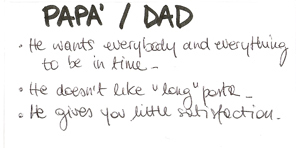 PAPA' / DAD
• He wants everybody and everything
to be in time_
• He doesn't like "long" pasta_
• He gives you little satisfaction_